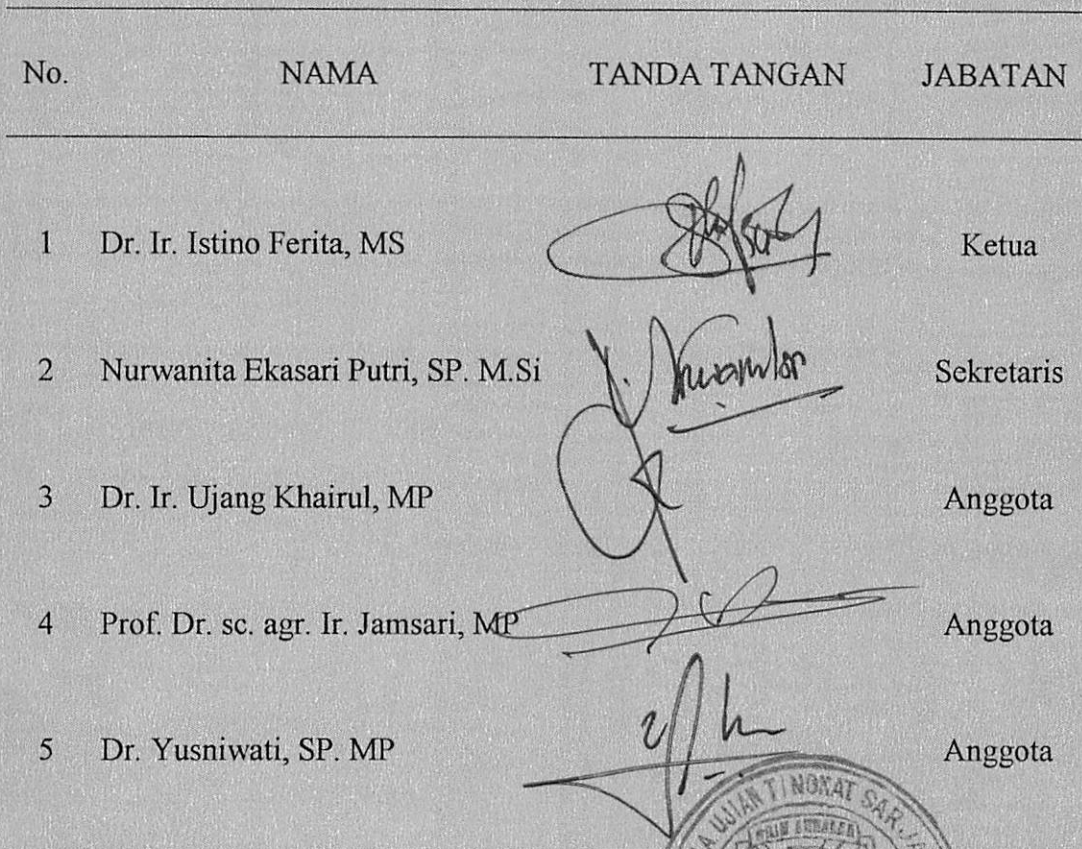 No. NAMA TANDA TANGAN JABATAN
1 Dr. Ir. Istino Ferita, MS Ketua
2 Nurwanita Ekasari Putri, SP. M.Si Sekretaris
3 Dr. Ir. Ujang Khairul, MP Anggota
4 Prof. Dr. sc. agr. Ir. Jamsari, MP Anggota
5 Dr. Yusniwati, SP. MP Anggota
UJIAN TINGKAT